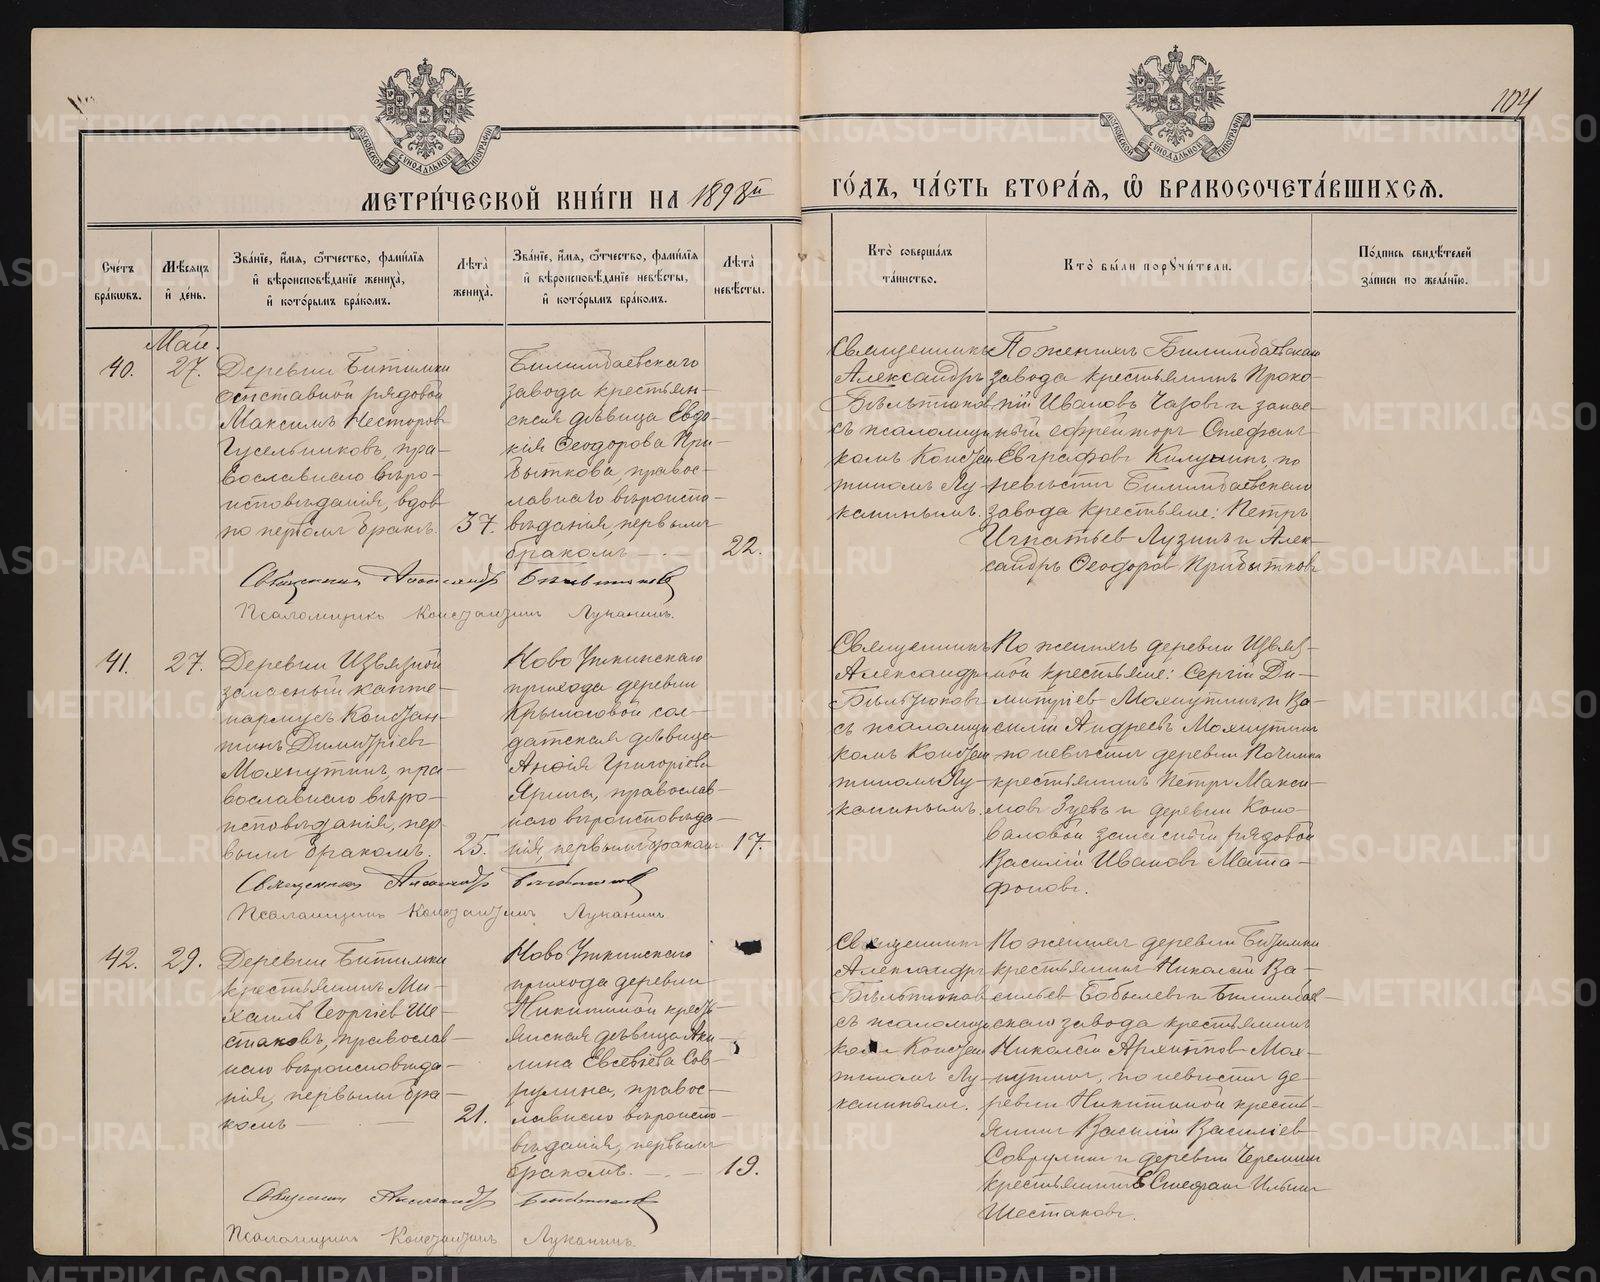 104
МОСКОВСКОЙ СѴНОДАЛЬНОЙ ТИПОГРАФІИ
МОСКОВСКОЙ СѴНОДАЛЬНОЙ ТИПОГРАФІИ
МЕТРИ́ЧЕСКОЙ КНИ́ГИ НА 1898й
ГО́ДЪ, ЧА́СТЬ ВТОРА́Я, Ѿ БРАКОСОЧЕТА́ВШИХСЯ.
Сче́тъ бра́кѡвъ.
Мѣ́сяцъ и҆ де́нь.
Зва́нїе, и҆́мя, ѻ҆́тчество, фами́лїя и҆ вѣроисповѣ́данїе жениха̀, и҆ кото́рымъ бра́комъ.
Лѣ́та жениха̀.
Зва́нїе, и҆́мя, ѻ҆́тчество, фами́лїя и҆ вѣроисповѣ́данїе невѣ́сты, и҆ кото́рымъ бра́комъ.
Лѣ́та невѣ́сты.
Кто̀ соверша́лъ та́инство.
Кто̀ бы́ли порꙋчи́тели.
По́дпись свидѣ́телей за́писи по жела́нїю.
Май.
40.
27.
Деревни Битимки
отставной рядовой
Максимъ Несторовъ
Гусельниковъ, пра-
вославнаго вѣро-
исповѣданія, вдовъ
по первомъ бракѣ.
37.
Билимбаевскаго
завода крестьян-
ская дѣвица Евдо-
кія Ѳеодорова При-
быткова, правос-
лавнаго вѣроиспо-
вѣданія, первымъ
бракомъ
22.
Священникъ
Александръ
Бѣльтюков
съ псаломщи
комъ Констан
тиномъ Лу-
канинымъ.
По женихѣ Билимбаевскаго
завода крестьянинъ Проко-
пій Ивановъ Чазовъ и запас-
ный ефрейторъ Стефанъ
Евграфовъ, по
невѣстѣ Билимбаевскаго
завода крестьяне: Петръ
Игнатьев Лузинъ и Алек-
сандръ Ѳеодоров Прибытковъ
Священникъ Александр Бѣльтюков
Псаломщикъ Константинъ Луканинъ.
41.
27.
Деревни Извязной
запасный капте-
нармусъ Констан-
тинъ Димитріевъ
Махнутинъ, пра-
вославнаго вѣро-
исповѣданія, пер-
вымъ бракомъ.
25.
Ново Уткинскаго
прихода деревни
Крылосовой сол-
датская дѣвица
Анѳія Григоріева
Ярина, православ-
наго вѣроисповѣда-
нія, первымъ бракомъ
17.
Священникъ
Александръ
Бѣльтюковъ
съ псаломщи
комъ Констан
тиномъ Лу-
канинымъ.
По женихѣ деревни Извяз-
ной крестьяне: Сергій Ди-
митріев Махнутинъ и Ва-
силій Андреевъ Махнутинъ
по невѣстѣ деревни Починка
крестьянинъ Петръ Макси-
мовъ Зуевъ и деревни Коно-
валовой запасный рядовой
Василій Ивановъ Мата-
фоновъ.
Священникъ Александр Бѣльтюков
Псаломщикъ Константинъ Луканинъ
42.
29.
Деревни Битимки
крестьянинъ Ми-
хаилъ Георгіев Ше-
стаковъ, православ-
наго вѣроисповѣда-
нія, первымъ бра-
комъ
21.
Ново Уткинскаго
прихода деревни
Никитиной кресть-
янская дѣвица Аки-
лина Евсевіева Сов-
рулина, правос-
лавнаго вѣроиспо-
вѣданія, первымъ
бракомъ.
19.
Священникъ
Александръ
Бѣльтюков
съ псаломщи
комъ Констан
тиномъ Лу-
канинымъ.
По женихѣ деревни Битимки
крестьянинъ Николай Ва-
сильев Бобылевъ и Билимбаев-
скаго завода крестьянинъ
Николай Архиповъ Мах-
нутинъ, по невѣстѣ де-
ревни Никитиной кресть-
янинъ Василій Василіев
Соврулинъ и деревни Черемши
крестьянинъ Стефанъ Ильинъ
Шестаковъ.
Священникъ Александр Бѣльтюков
Псаломщикъ Константинъ Луканинъ.
METRIKI.GASO-URAL.RU